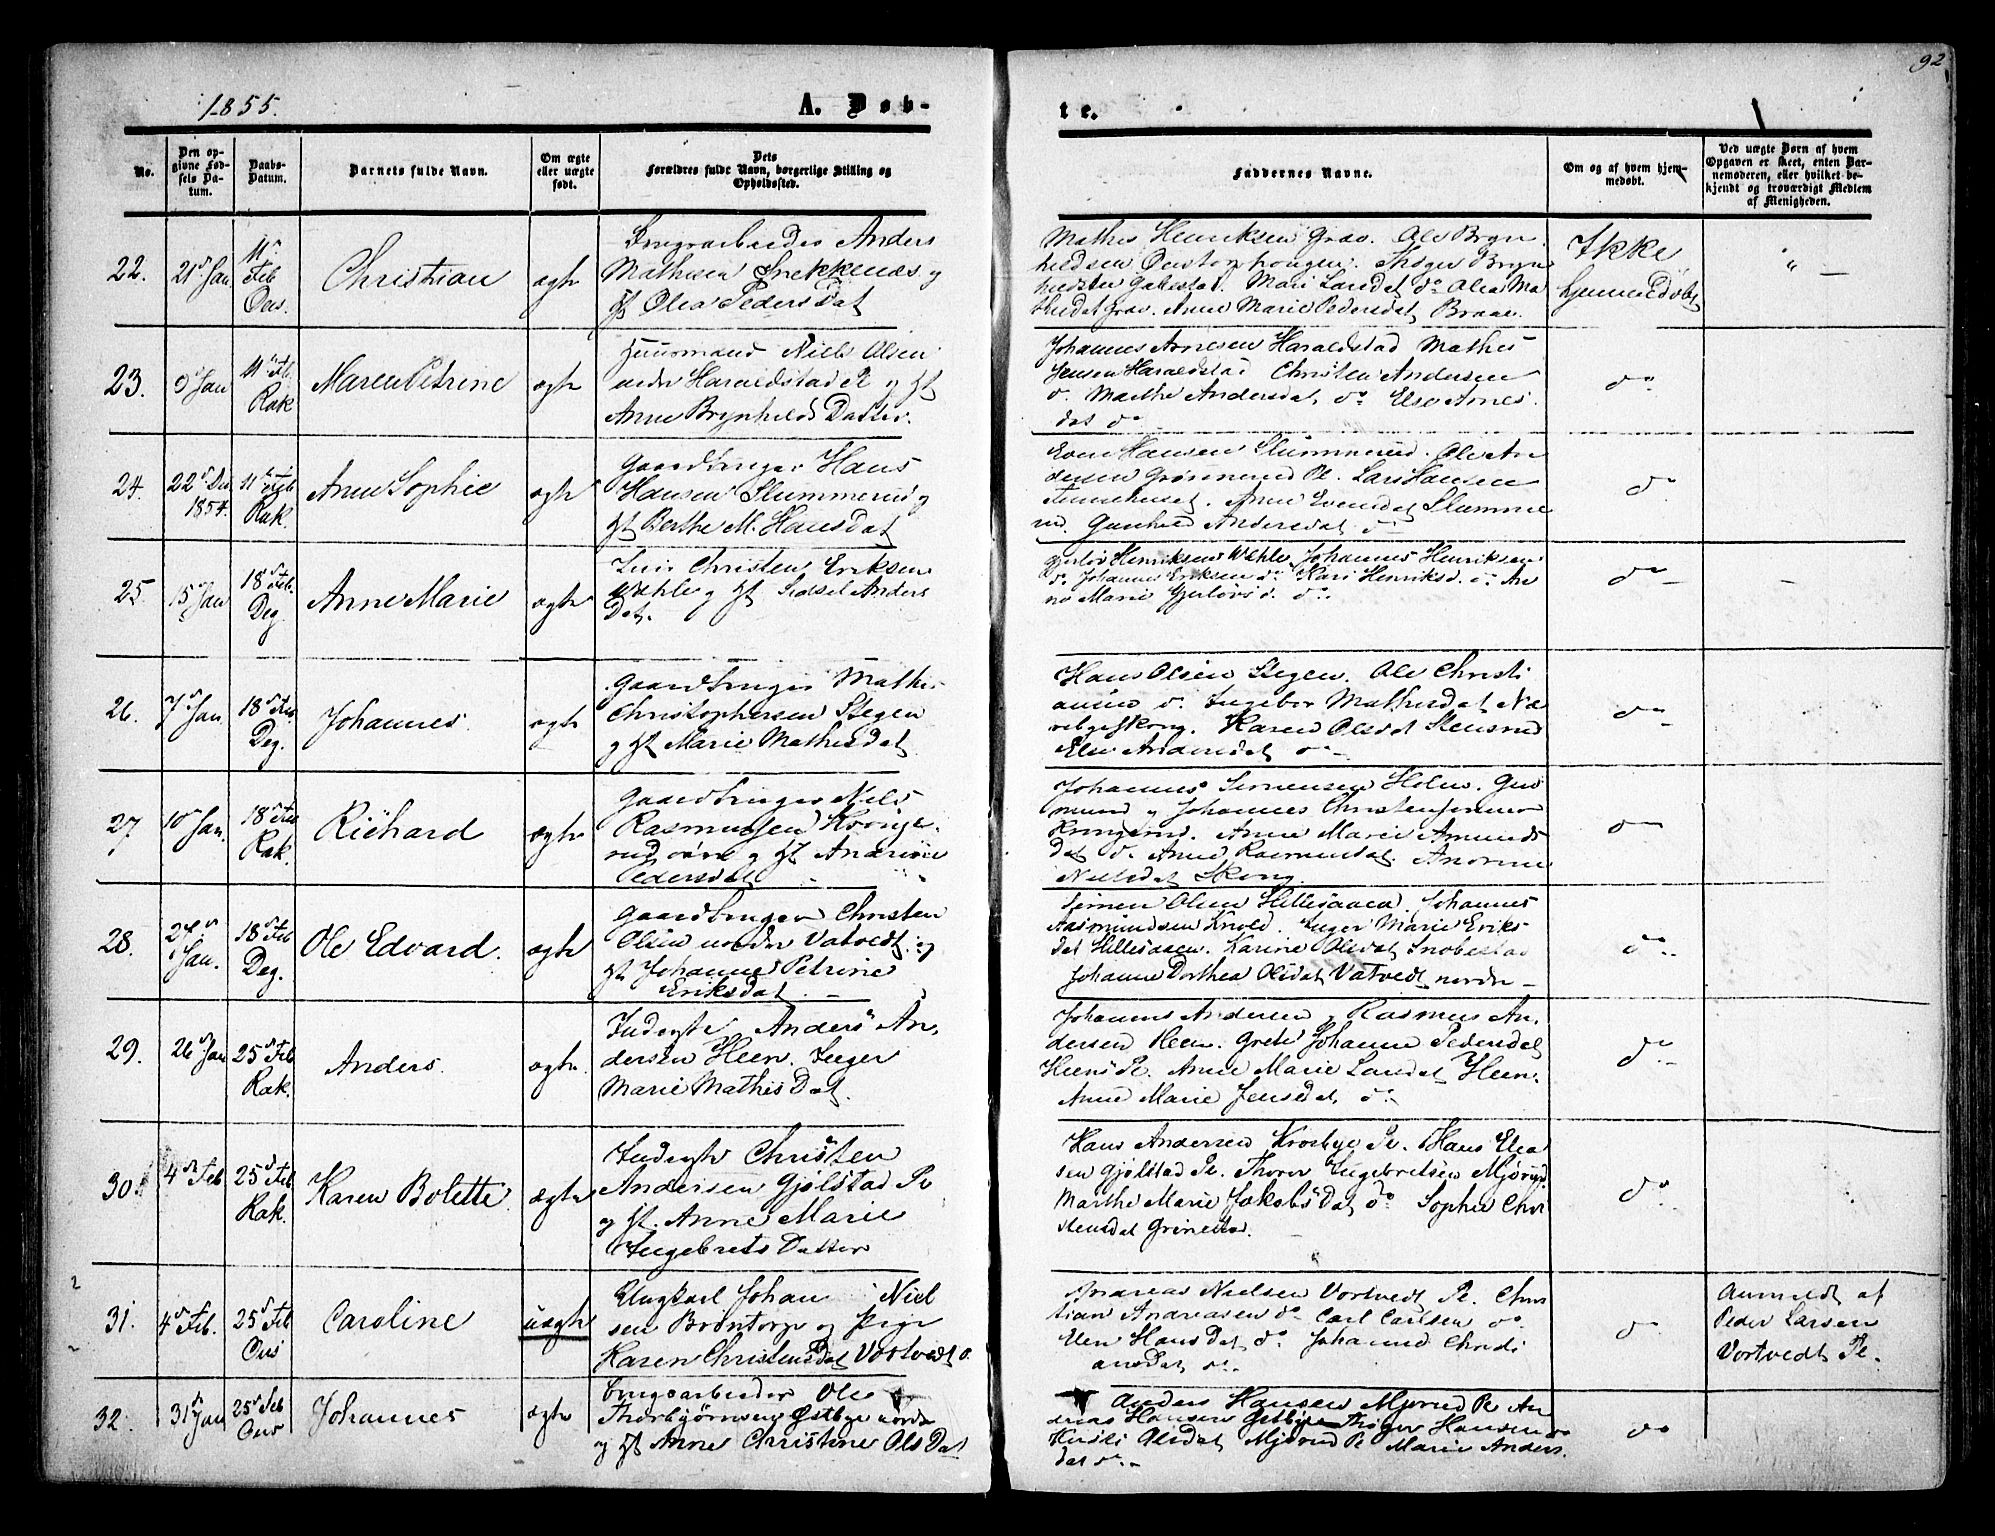 92
1855.
A. Døb-
te.
No.
Den op-
givne Fød-
sels Da-
tum.
Daabs-
Datum.
Barnets fulde Navn.
Om ægte
eller uægte
født.
Dets
Forældres fulde Navn, borgerlige Stilling og
Opholdssted.
Faddernes Navne.
Om og af hvem hjem-
medøbt.
Ved uægte Børn af hvem
Opgaven er skeet, enten Bar-
nemoderen, eller hvilket be-
kjendt og troværdigt Medlem
af Menigheden.
22.
21d Jan
11te
Feb
Ous.
Christian
ægte
Brugsarbeider Anders
Mathisen Snekkenæs og
Hst Olea Pedersdat
Mathis Henriksen Grav. Ole Bryn
hildsen
hildsen Gakestad. Mari Larsdat do Olea Ma
thisdat Grav. Anne Marie Pedersdat Braae.
Ikke
hjemmedøbt
23.
Jan
11te Feb.
Rak
Maren Petrine
ægte
Huusmand Niels Olsen
under Haraldstad Pl og Hst
Anne Brynhilds Datter.
Johannes Arnesen Haraldstad Mathis
Jensen Haraldstad Christen Andersen
do. Marthe Andersdat. do Else Arnes
dat do
do
24.
22d Dec
1854.
11te Feb
Rak.
Anne Sophie
ægte
Gaardbruger Hans
Hansen Slummerud og
Hst Berthe M. Hansdat
Even Hansen Slummerud. Ole An
dersen Grønnerud Pl. Lars Hansen
Anne Evensdat Slumme
rud. Gunhild Andersdat do
do
25.
15d Jan
18d Feb.
Deg.
Anne Marie
ægte
Christen Eriksen
Wahle og Hst Sidsel Anders
Dat.
Gjerløv Henriksen Wahle Johannes Henriksen
do. Johannes Eriksen do Kari Henriksd. do An
ne Marie Gjerløvs d. do
do
26.
7d Jan
18d Feb
Deg.
Johannes.
ægte
Gaardbruger Mathis
Christophersen Stegen
og Hst Marie Mathisdat
Hans Olsen Stegen. Ole Christi
ansen do. Ingebor Mathisdat Næ
Karen Olsdat Stensrud
Else Andersdat do
do
27
10d Jan.
18d Feb
Rak.
Richard
ægte
Gaardbruger Niels
Rasmussen Kronge-
rud øvre og Hst Andrine
Pedersdat
Johannes Simensen Holm. Gud
mund og Johannes Christensønner
Krongerud. Anne Marie Amunds
dat do Anne Rasmusdat. Andrine
Nielsdat Skong.
do
28.
24d
Jan.
18d Feb
Deg.
Ole Edvard.
ægte
Gaardbruger Christen
Olsen nordre Vatvedt og
Hst Johanne Petrine
Eriksdat.
Simen Olsen Hillesaaen. Johannes
Rasmundsen Knold. Inger Marie Eriks-
dat Hillesaaen. Karine Olsdat
Johanne Dorthea Olsdat Vatvedt nordre
do
29.
26d Jan
25d Feb
Rak.
Anders.
ægte
Inderste Anders An-
dersen Heen. Inger
Marie Mathis Dat.
Johannes Andersen og Rasmus An-
dersen Heen. Grete Johanne Pedersdat
Heens Pl. Anne Marie Larsdat Heen.
Anne Marie Jensdat. do
do
30.
4d Feb
25d Feb
Rak.
Karen Bolette.
ægte
Inderste Christen
Andersen Gjølstad Pl
og Hst. Anne Marie
Ingebrets Datter
Hans Andersen Krosbye Pl. Hans Elia
sen Gjølstad Pl. Thorer Ingebretsen Mjørud.
Marthe Marie Jakobs Dat do Sophie Chri
stensdat Grinestad.
do
31.
4d Feb.
25d Feb
Ous
Caroline
uægte
Ungkarl Johan Niel
sen Brøntorp og Pige
Karen Christensdat Vortvedt do.
Andreas Nielsen Vortvedt Pl. Chri
stian Andreasen do Carl Carlsen do.
Elen Hans Dat do Johanne Christi
ansdat do.
do
Anmeldt af
Peder Larsen
Vortvedt Pl.
32.
31d Jan
25d Feb
Ous
Johannes
ægte
Brugsarbeider Ole
Thorbjørnsen Østbye nordre
og Hst Anne Christine Ols Dat
Anders Hansen Mjørud Pl An
dreas Hansen Østbye Thiger Hansen do
Olsdat Mjørud Pl Marie Anders
dat do
do